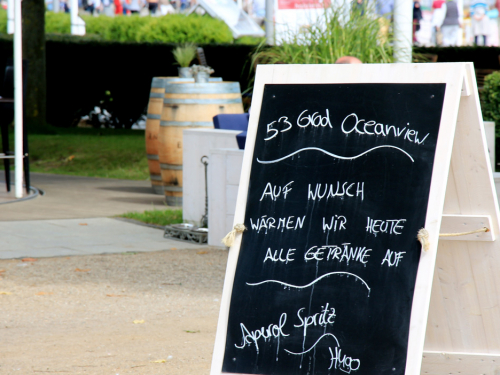 53 Grad Oceanview
AUF WUNSCH
WÄRMEN WIR HEUTE
ALLE GETRÄNKE AUF
Aperol Spritz
Hugo